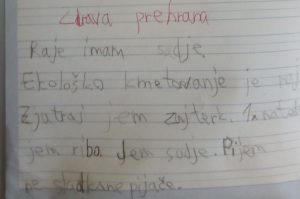 Zdrava prehrana
Raje imam sadje.
Ekološko kmetovanje je
Zjutraj jem zajterk. 1x na
jem ribo. Jem sadje. Pijem
ne sladkane pijače.